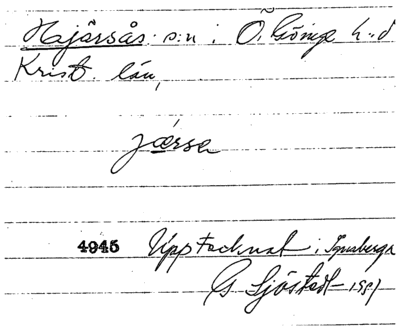 Hjärsås s:n i Ö. Göinge h:d
Krist. län,
jærsa
4945 Upptecknat i
G Sjöstedt 1951